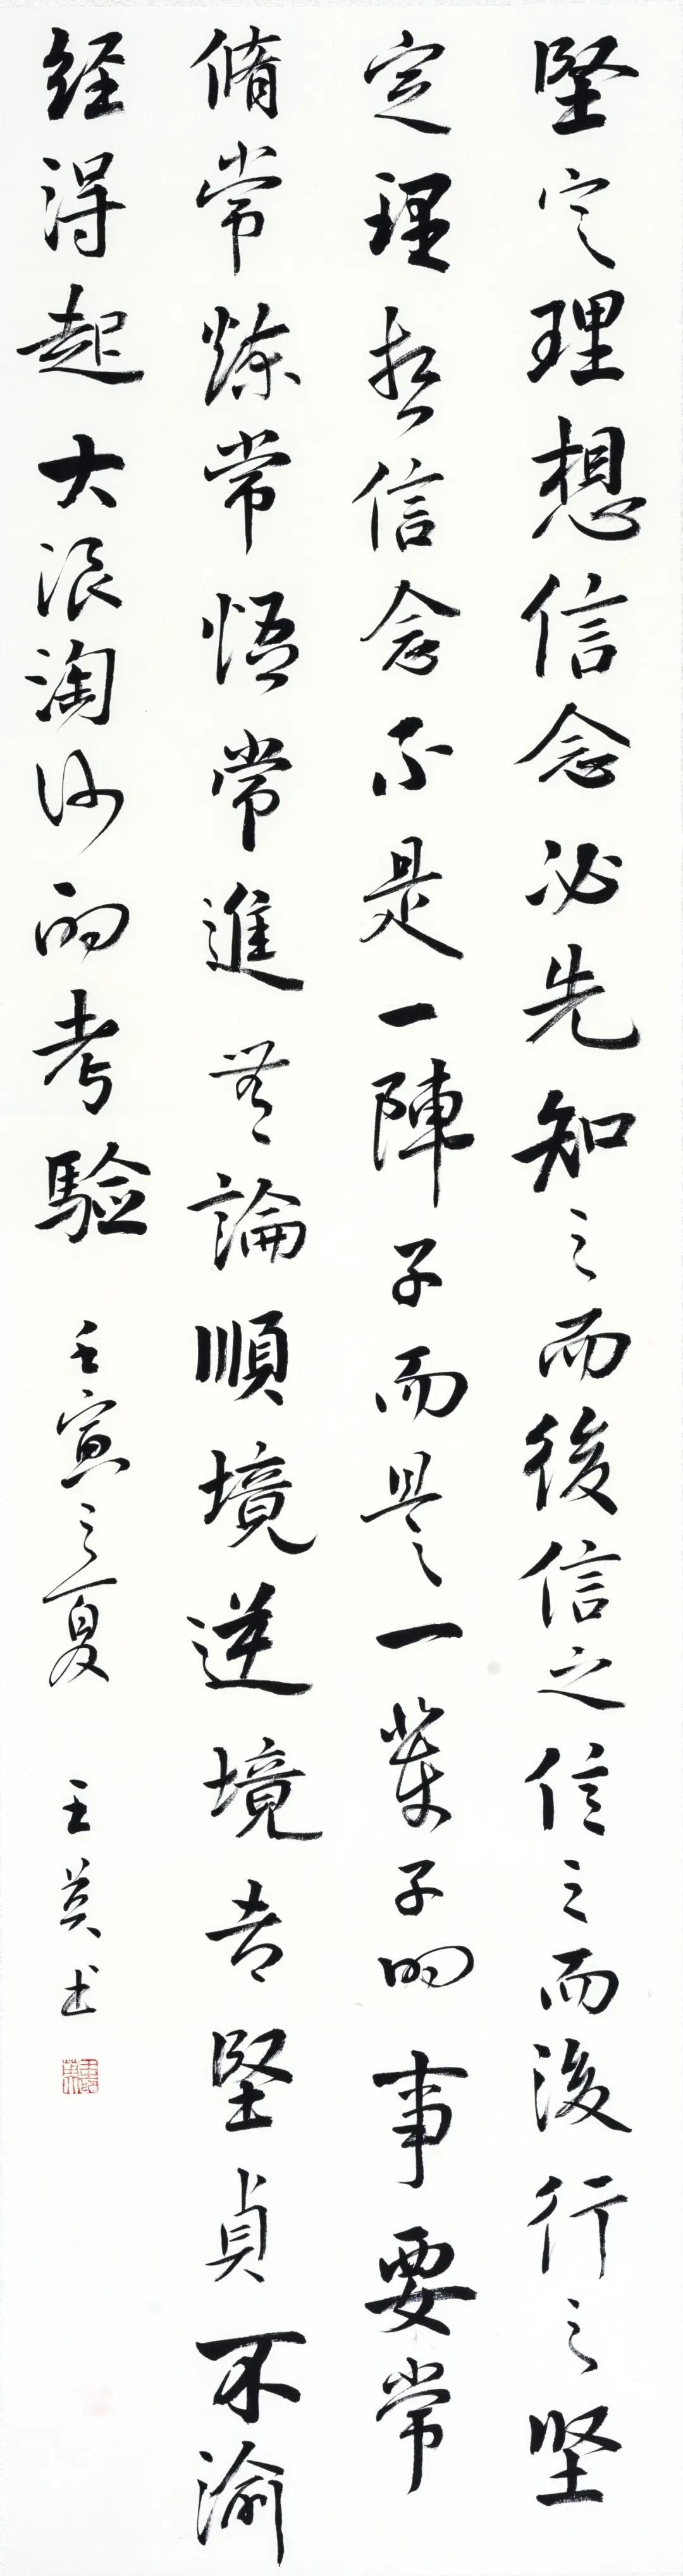 堅定理想信念必先知之而後信之信之而後行之坚
定理想信念不是一陣子而是一輩子的事要常
脩常煉常悟常進无論順境逆境都堅貞不渝
经得起大浪淘沙的考驗
壬寅之夏
王英书